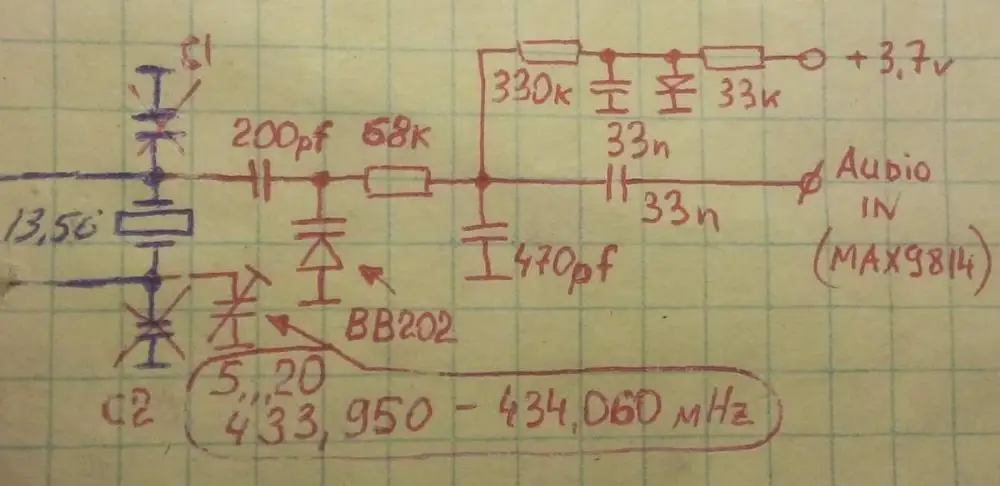 C1
200pf
68k
330k
33k
+3,7v
33n
33n
Audio
IN
(MAX9814)
13,56
470pf
BB202
C2
5...20
433,950 - 434,060 мHz